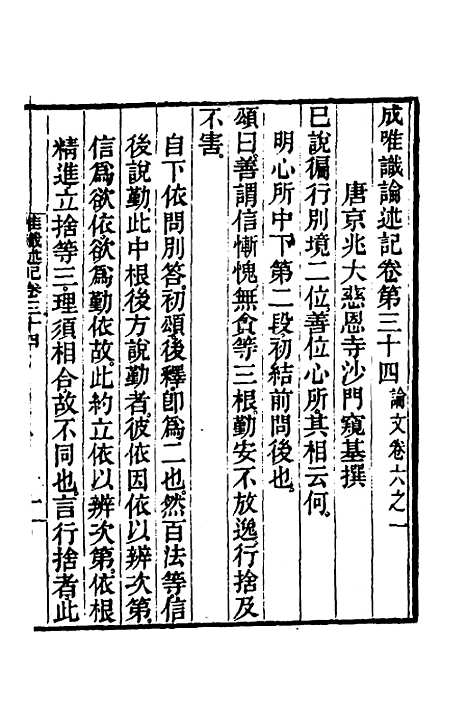 成唯識論述記卷第三十四 論文卷六之一
唐京兆大慈恩寺沙門窺基撰
已說徧行別境二位善位心所其相云何
明心所中下第二段初結前問後也
頌曰善謂信慚愧無貪等三根勤安不放逸行捨及
不害
自下依問別答初頌後釋即爲二也然百法等信
後說勤此中根後方說勤者彼依因依以辨次第
信爲欲依欲爲勤依故此約立依以辨次第依根
精進立捨等三理須相合故不同也言行捨者此
唯識述記卷三十四 一